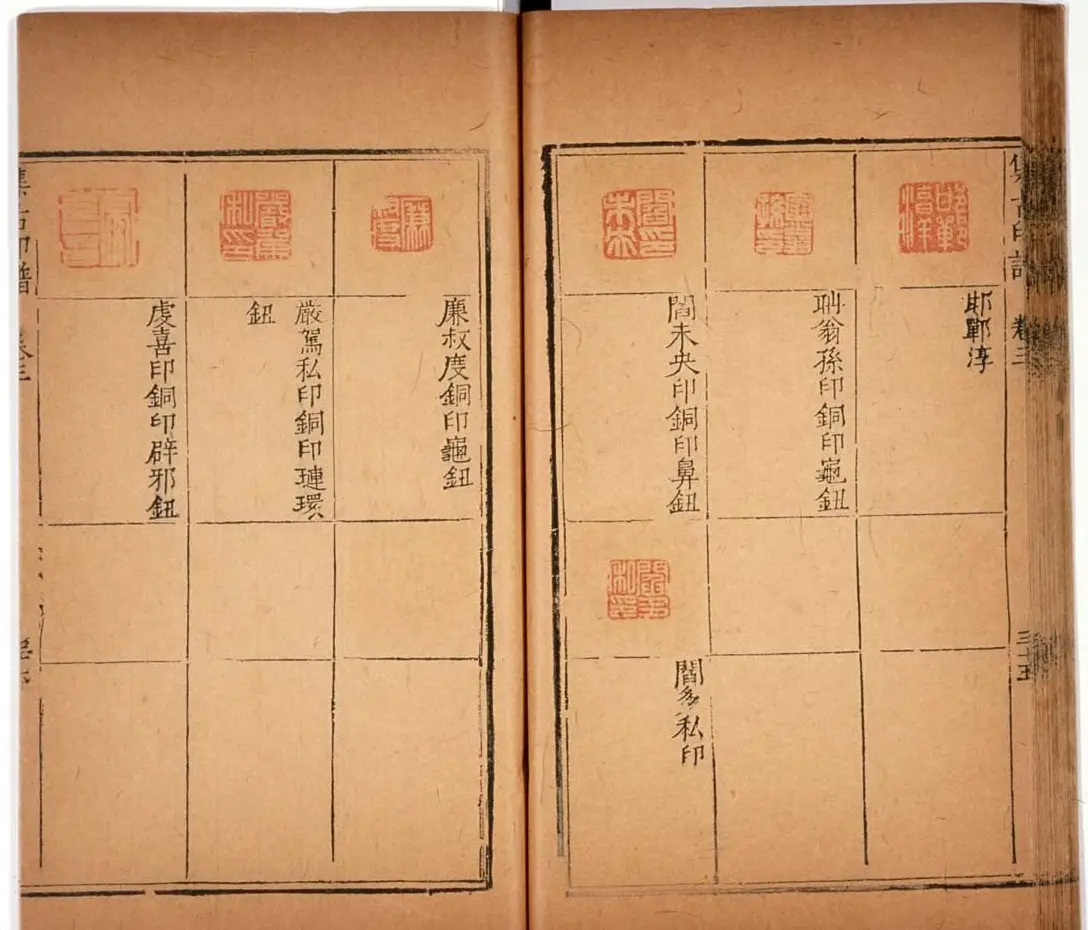 集古印譜 卷三
三十五
邯鄲淳
耼翁孫印銅印龜鈕
閻未央印銅印鼻鈕
閻多私印
廉叔度銅印龜鈕
嚴駕私印銅印璉環
鈕
虔喜印銅印辟邪鈕
集古印譜 卷三